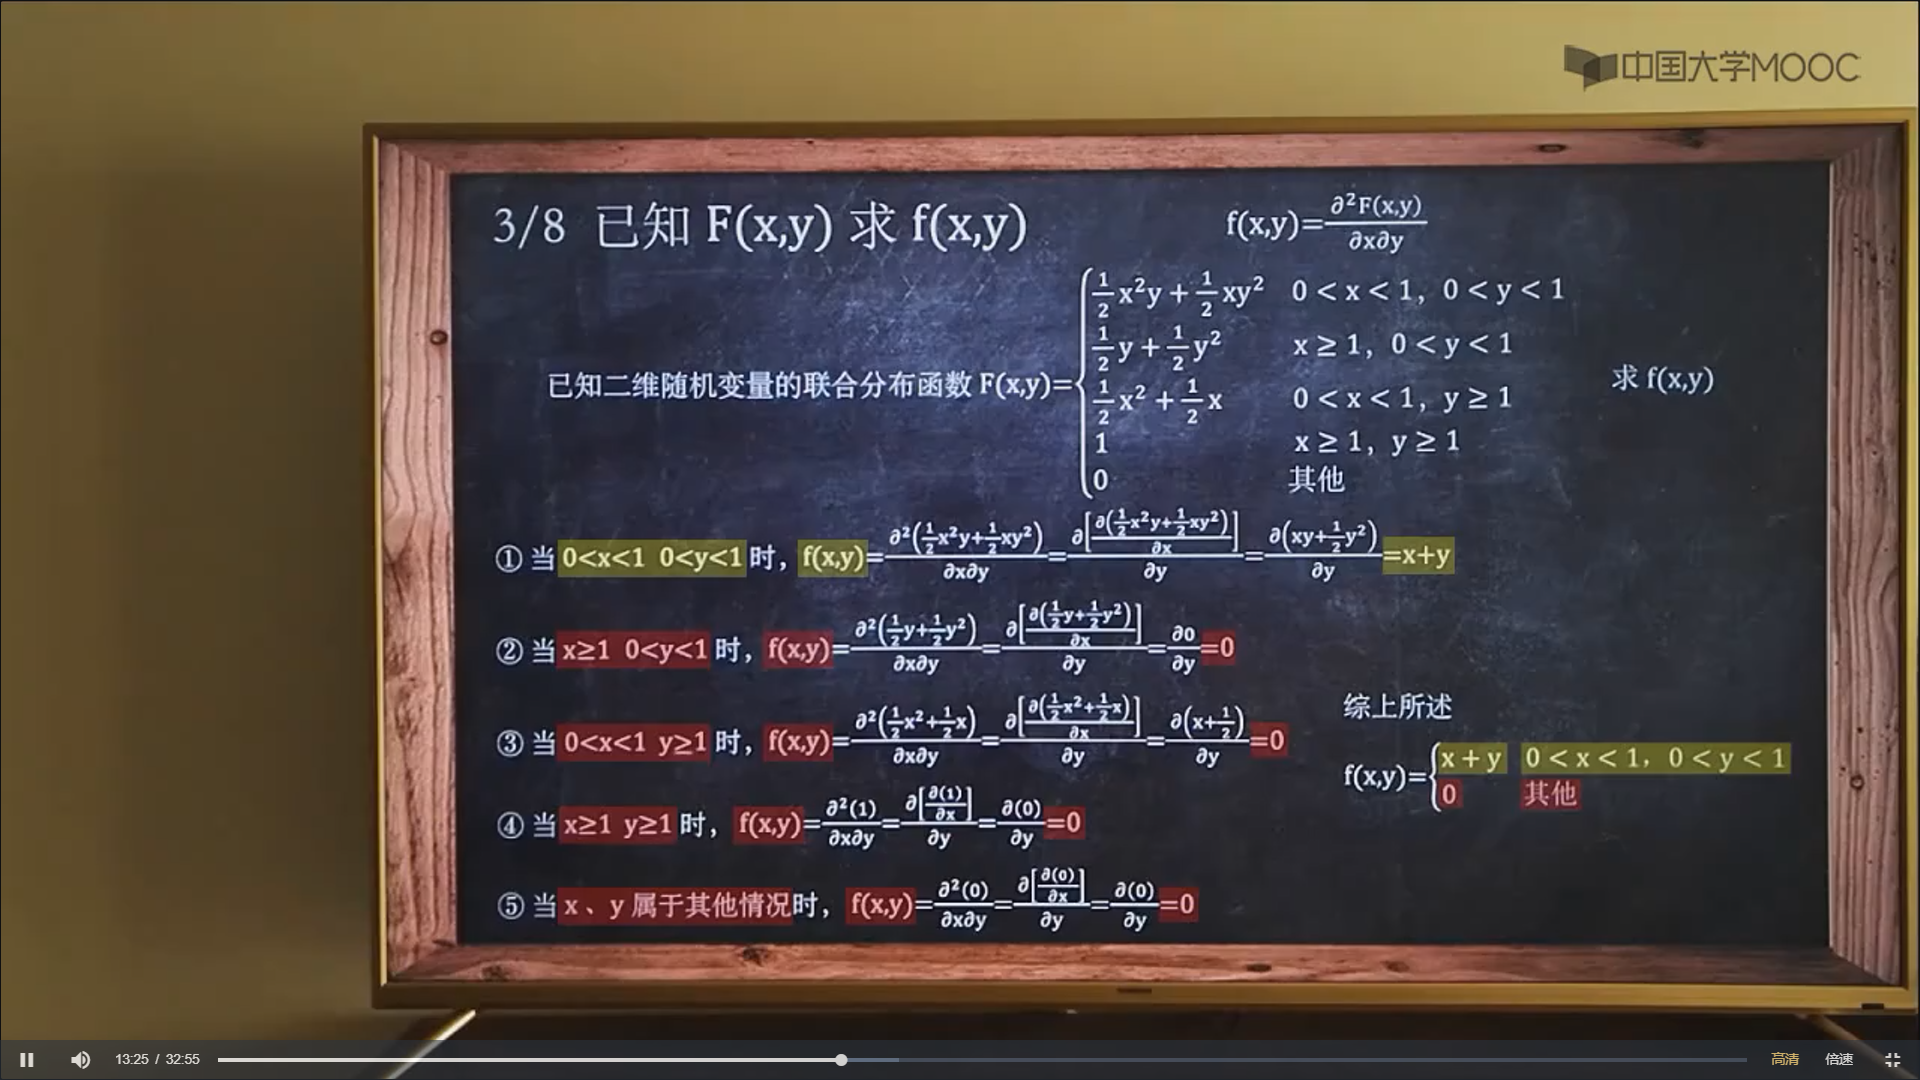 中国大学MOOC
3/8 已知 F(x,y) 求 f(x,y)
f(x,y)=∂²F(x,y)/∂x∂y
已知二维随机变量的联合分布函数 F(x,y)={
1/2x²y+1/2xy² 0<x<1, 0<y<1
1/2y+1/2y² x≥1, 0<y<1
1/2x²+1/2x 0<x<1, y≥1
1 x≥1, y≥1
0 其他
求 f(x,y)
① 当 0<x<1 0<y<1 时, f(x,y)=∂²(1/2x²y+1/2xy²)/∂x∂y=∂[∂(1/2x²y+1/2xy²)/∂x]/∂y=∂(xy+1/2y²)/∂y=x+y
② 当 x≥1 0<y<1 时, f(x,y)=∂²(1/2y+1/2y²)/∂x∂y=∂[∂(1/2y+1/2y²)/∂x]/∂y=∂0/∂y=0
③ 当 0<x<1 y≥1 时, f(x,y)=∂²(1/2x²+1/2x)/∂x∂y=∂[∂(1/2x²+1/2x)/∂x]/∂y=∂(x+1/2)/∂y=0
④ 当 x≥1 y≥1 时, f(x,y)=∂²(1)/∂x∂y=∂[∂(1)/∂x]/∂y=∂(0)/∂y=0
⑤ 当 x、y 属于其他情况时, f(x,y)=∂²(0)/∂x∂y=∂[∂(0)/∂x]/∂y=∂(0)/∂y=0
综上所述
f(x,y)={
x+y 0<x<1, 0<y<1
0 其他
13:25 / 32:55
高清
倍速